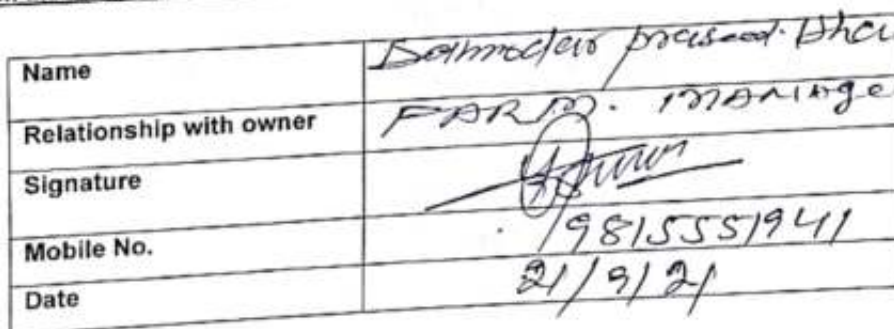 Name Dammodar prasad. Dha
Relationship with owner FARM. MANAGe
Signature
Mobile No. 9815551941
Date 21/9/21